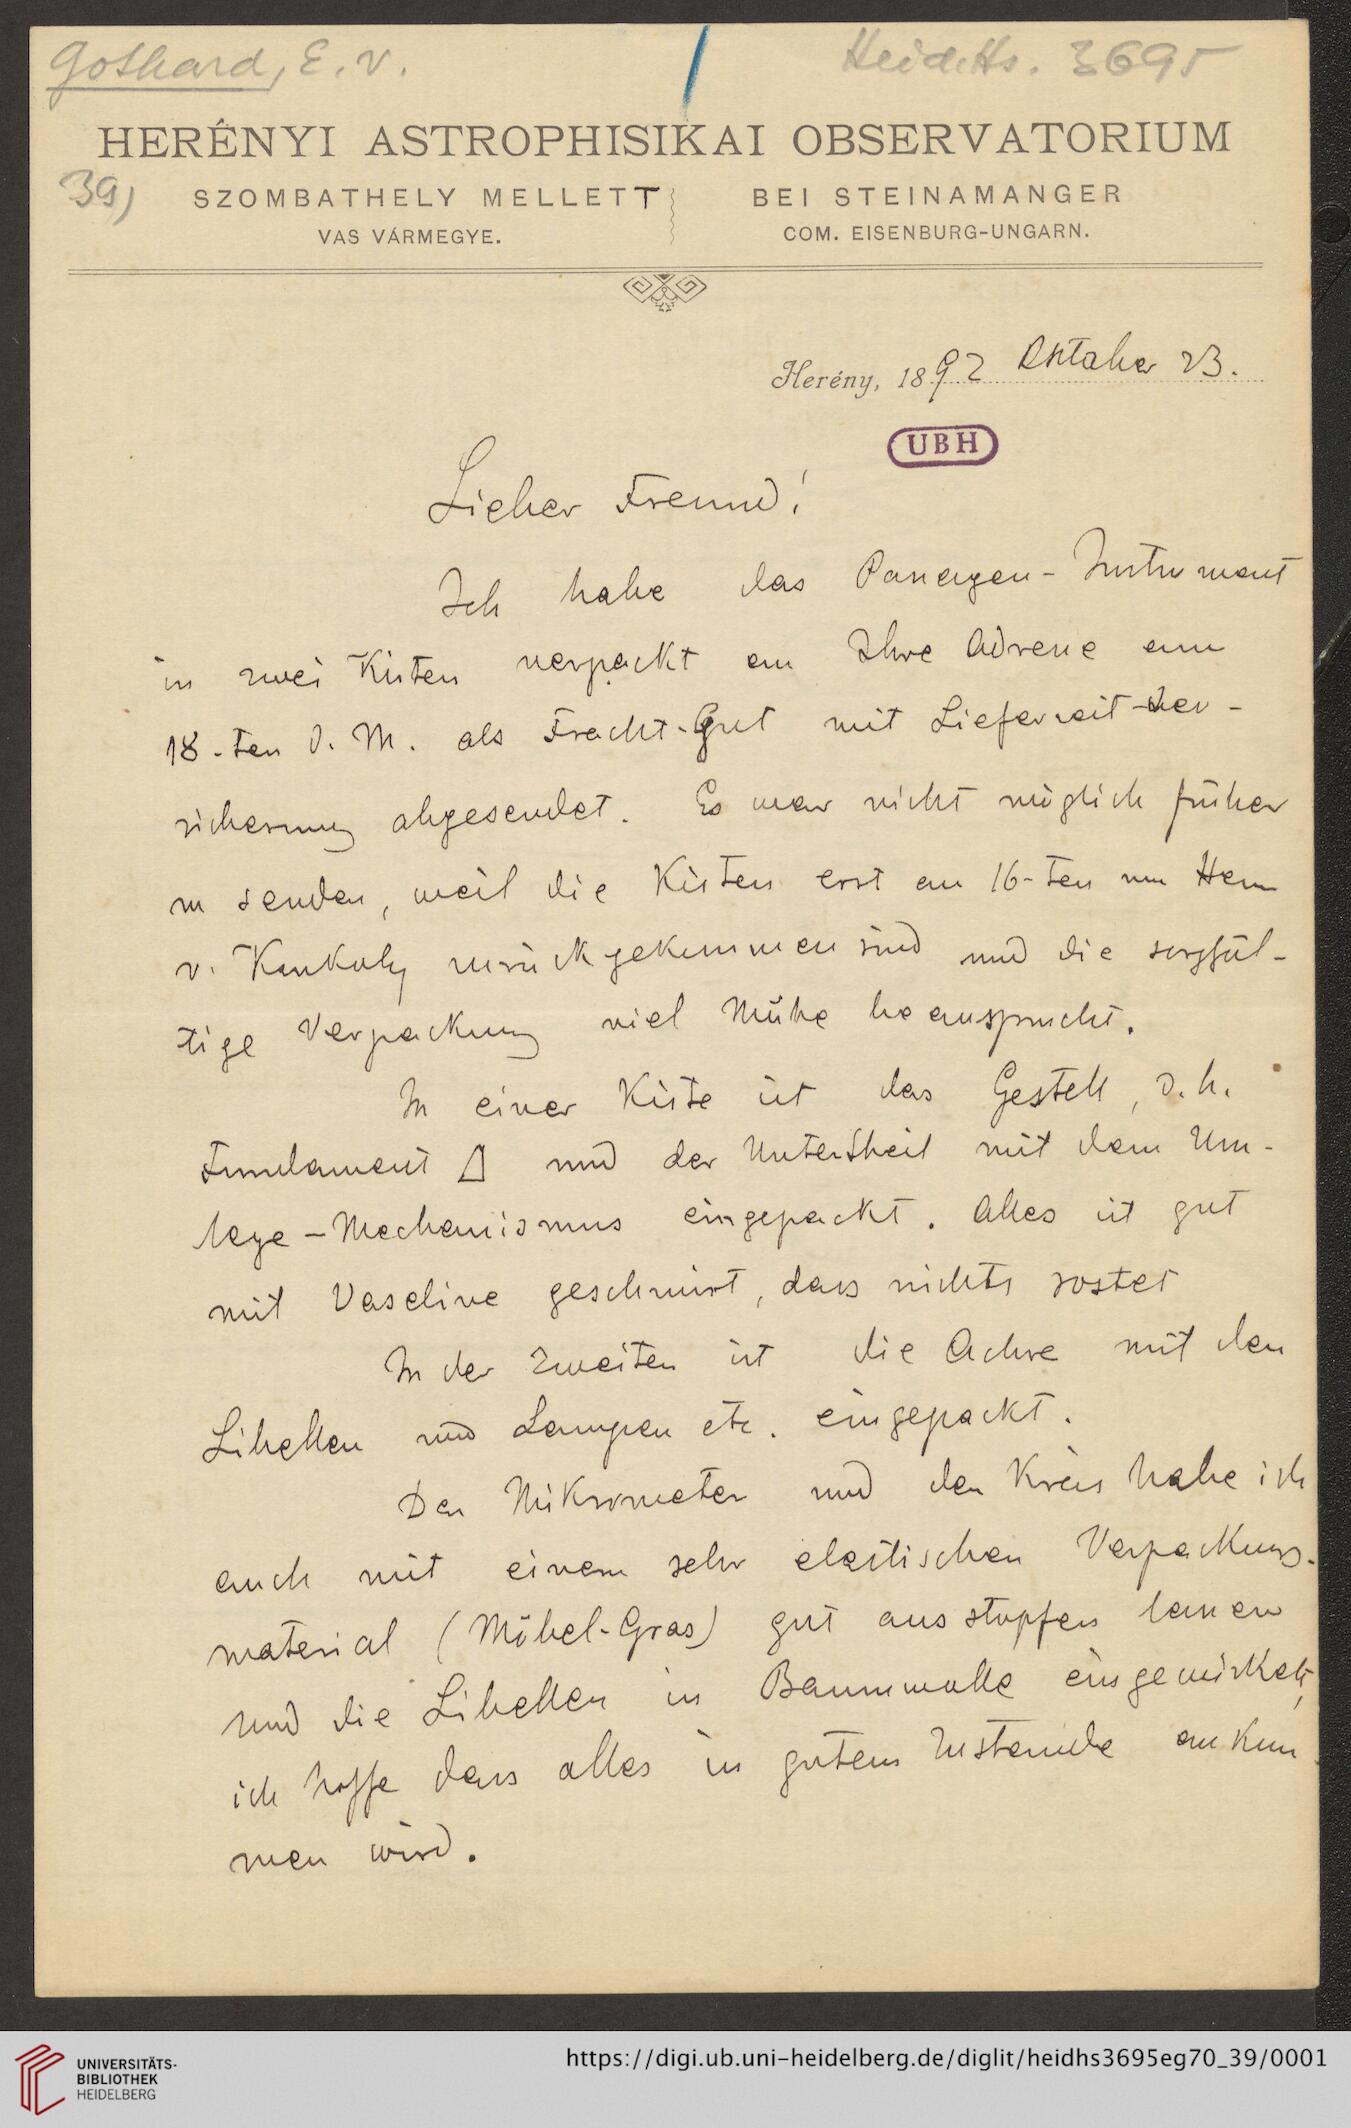 Gothard, E. v.
Heid. Hs. 3695
HERÉNYI ASTROPHISIKAI OBSERVATORIUM
39)
SZOMBATHELY MELLETT
VAS VÁRMEGYE.
BEI STEINAMANGER
COM. EISENBURG-UNGARN.
Herény, 1892 Oktober 23.
UBH
Lieber Freund!
Ich habe das Passagen-Instrument
in zwei Kisten verpackt an Ihre Adresse am
18-ten d. M. als Fracht-Gut mit Lieferzeit-Ver-
sicherung abgesendet. Es war nicht möglich früher
zu senden, weil die Kisten erst am 16-ten von Herrn
v. Konkoly zurückgekommen sind und die sorgfäl-
tige Verpackung viel Mühe beansprucht.
In einer Kiste ist das Gestell, d. h.
Fundament und der Untertheil mit dem Um-
lege-Mechanismus eingepackt. Alles ist gut
mit Vaseline geschmirt, dass nichts rostet
In der zweiten ist die Achse mit den
Libellen und Lampen etc. eingepackt.
Den Mikrometer und den Kreis habe ich
auch mit einem sehr elastischen Verpackungs-
material (Möbel-Gras) gut ausstopfen lassen
und die Libellen in Baumwolle eingewickelt,
ich hoffe dass alles in gutem Zustande ankom
men wird.
UNIVERSITÄTS-
BIBLIOTHEK
HEIDELBERG
https://digi.ub.uni-heidelberg.de/diglit/heidhs3695eg70_39/0001